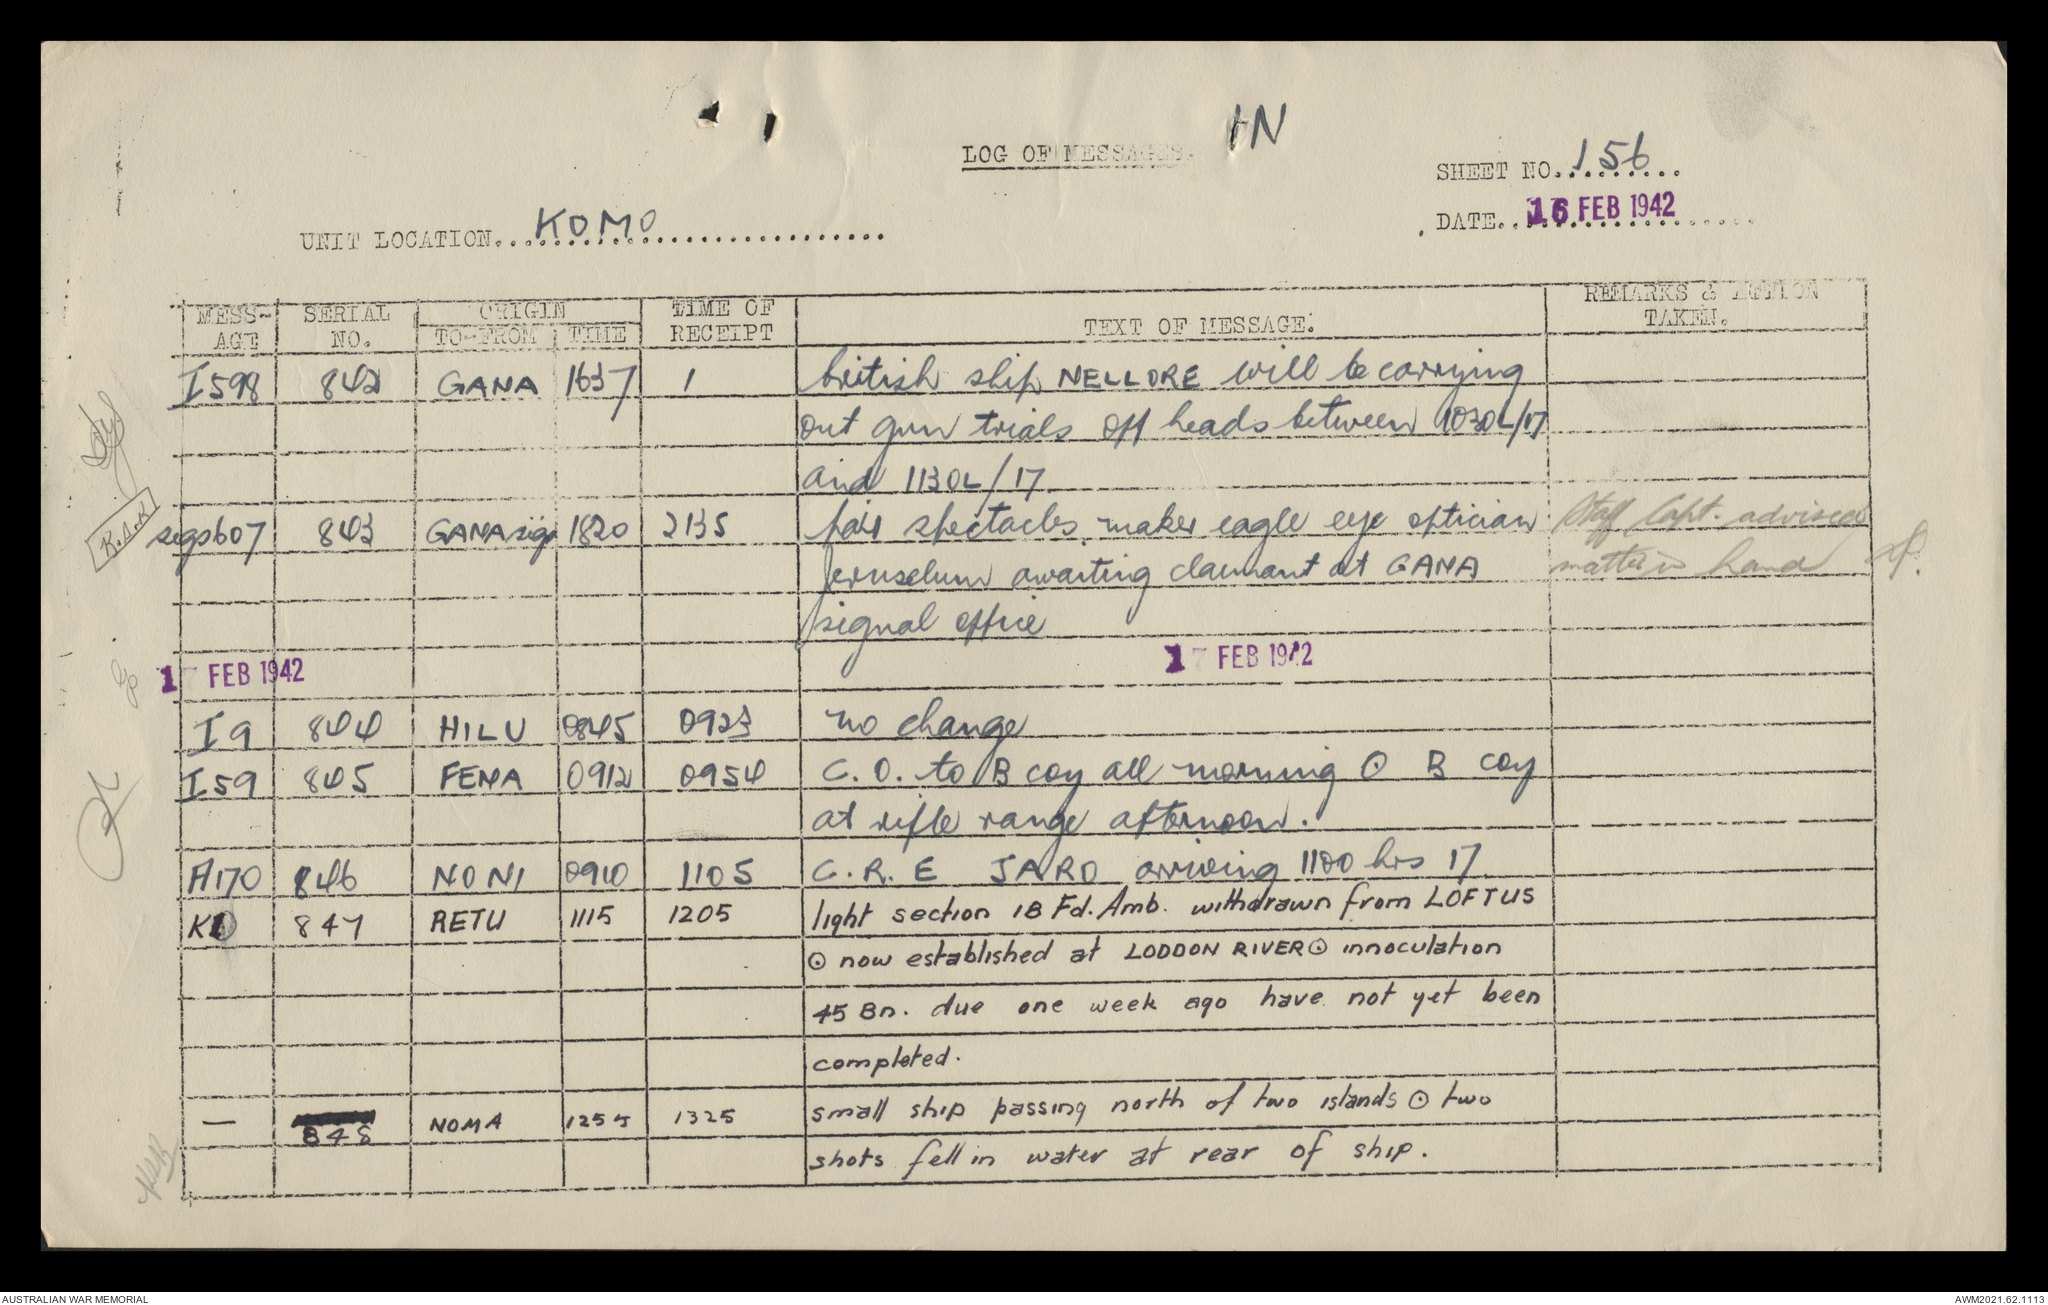 LOG OF MESSAGES. IN
SHEET NO. 156
UNIT LOCATION KOMO
DATE 16 FEB 1942
MESS-AGE SERIAL NO. ORIGIN TO-FROM TIME TIME OF RECEIPT TEXT OF MESSAGE. REMARKS & ACTION TAKEN.
I598 842 GANA 1637 1 british ship NELLORE will be carrying
out gun trials off heads between 1030L/17
and 1130L/17
sigs607 843 GANA sigs 1820 2135 pair spectacles, maker eagle eye optician Staff Capt. advised
Jeruselum awaiting claimant at GANA matter in hand
signal office
17 FEB 1942 17 FEB 1942
I9 844 HILU 0845 0923 no change
I59 845 FENA 0912 0954 C.O. to B coy all morning ⊙ B coy
at rifle range afternoon.
A170 846 NONI 0910 1105 C.R.E JARO arriving 1100 hrs 17
K1 847 RETU 1115 1205 light section 1B Fd. Amb. withdrawn from LOFTUS
⊙ now established at LODDON RIVER ⊙ innoculation
45 Bn. due one week ago have not yet been
completed.
— 848 NOMA 1255 1325 small ship passing north of two islands ⊙ two
shots fell in water at rear of ship.
AUSTRALIAN WAR MEMORIAL AWM2021.62.1113